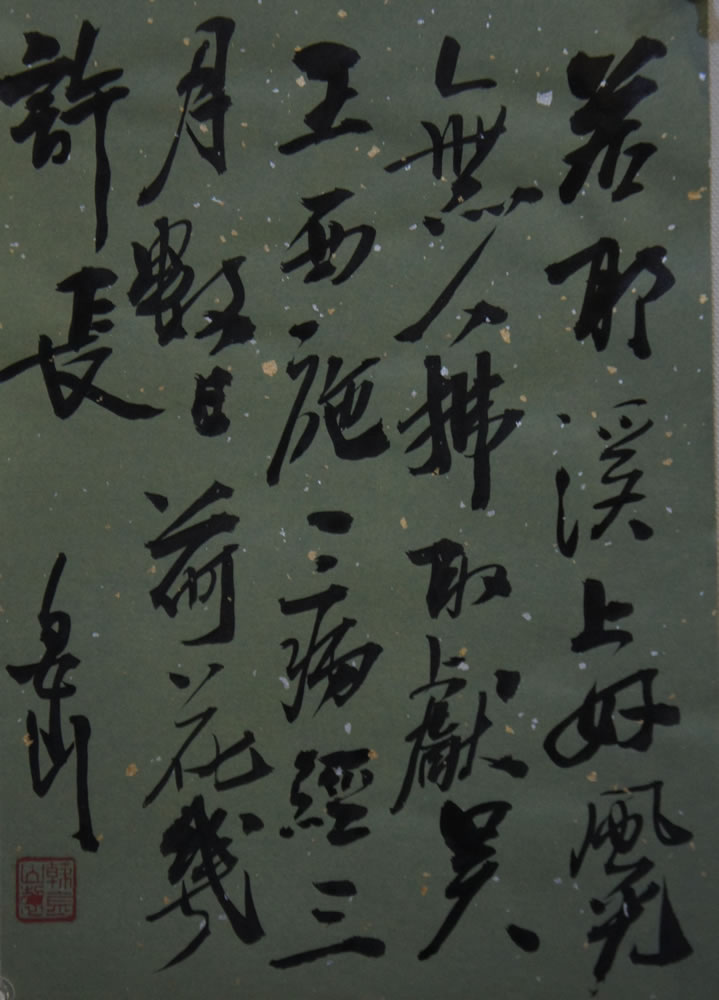 若耶溪上好風光
無人拂取獻吳
王西施一病經三
月數日荷花幾
許長 山